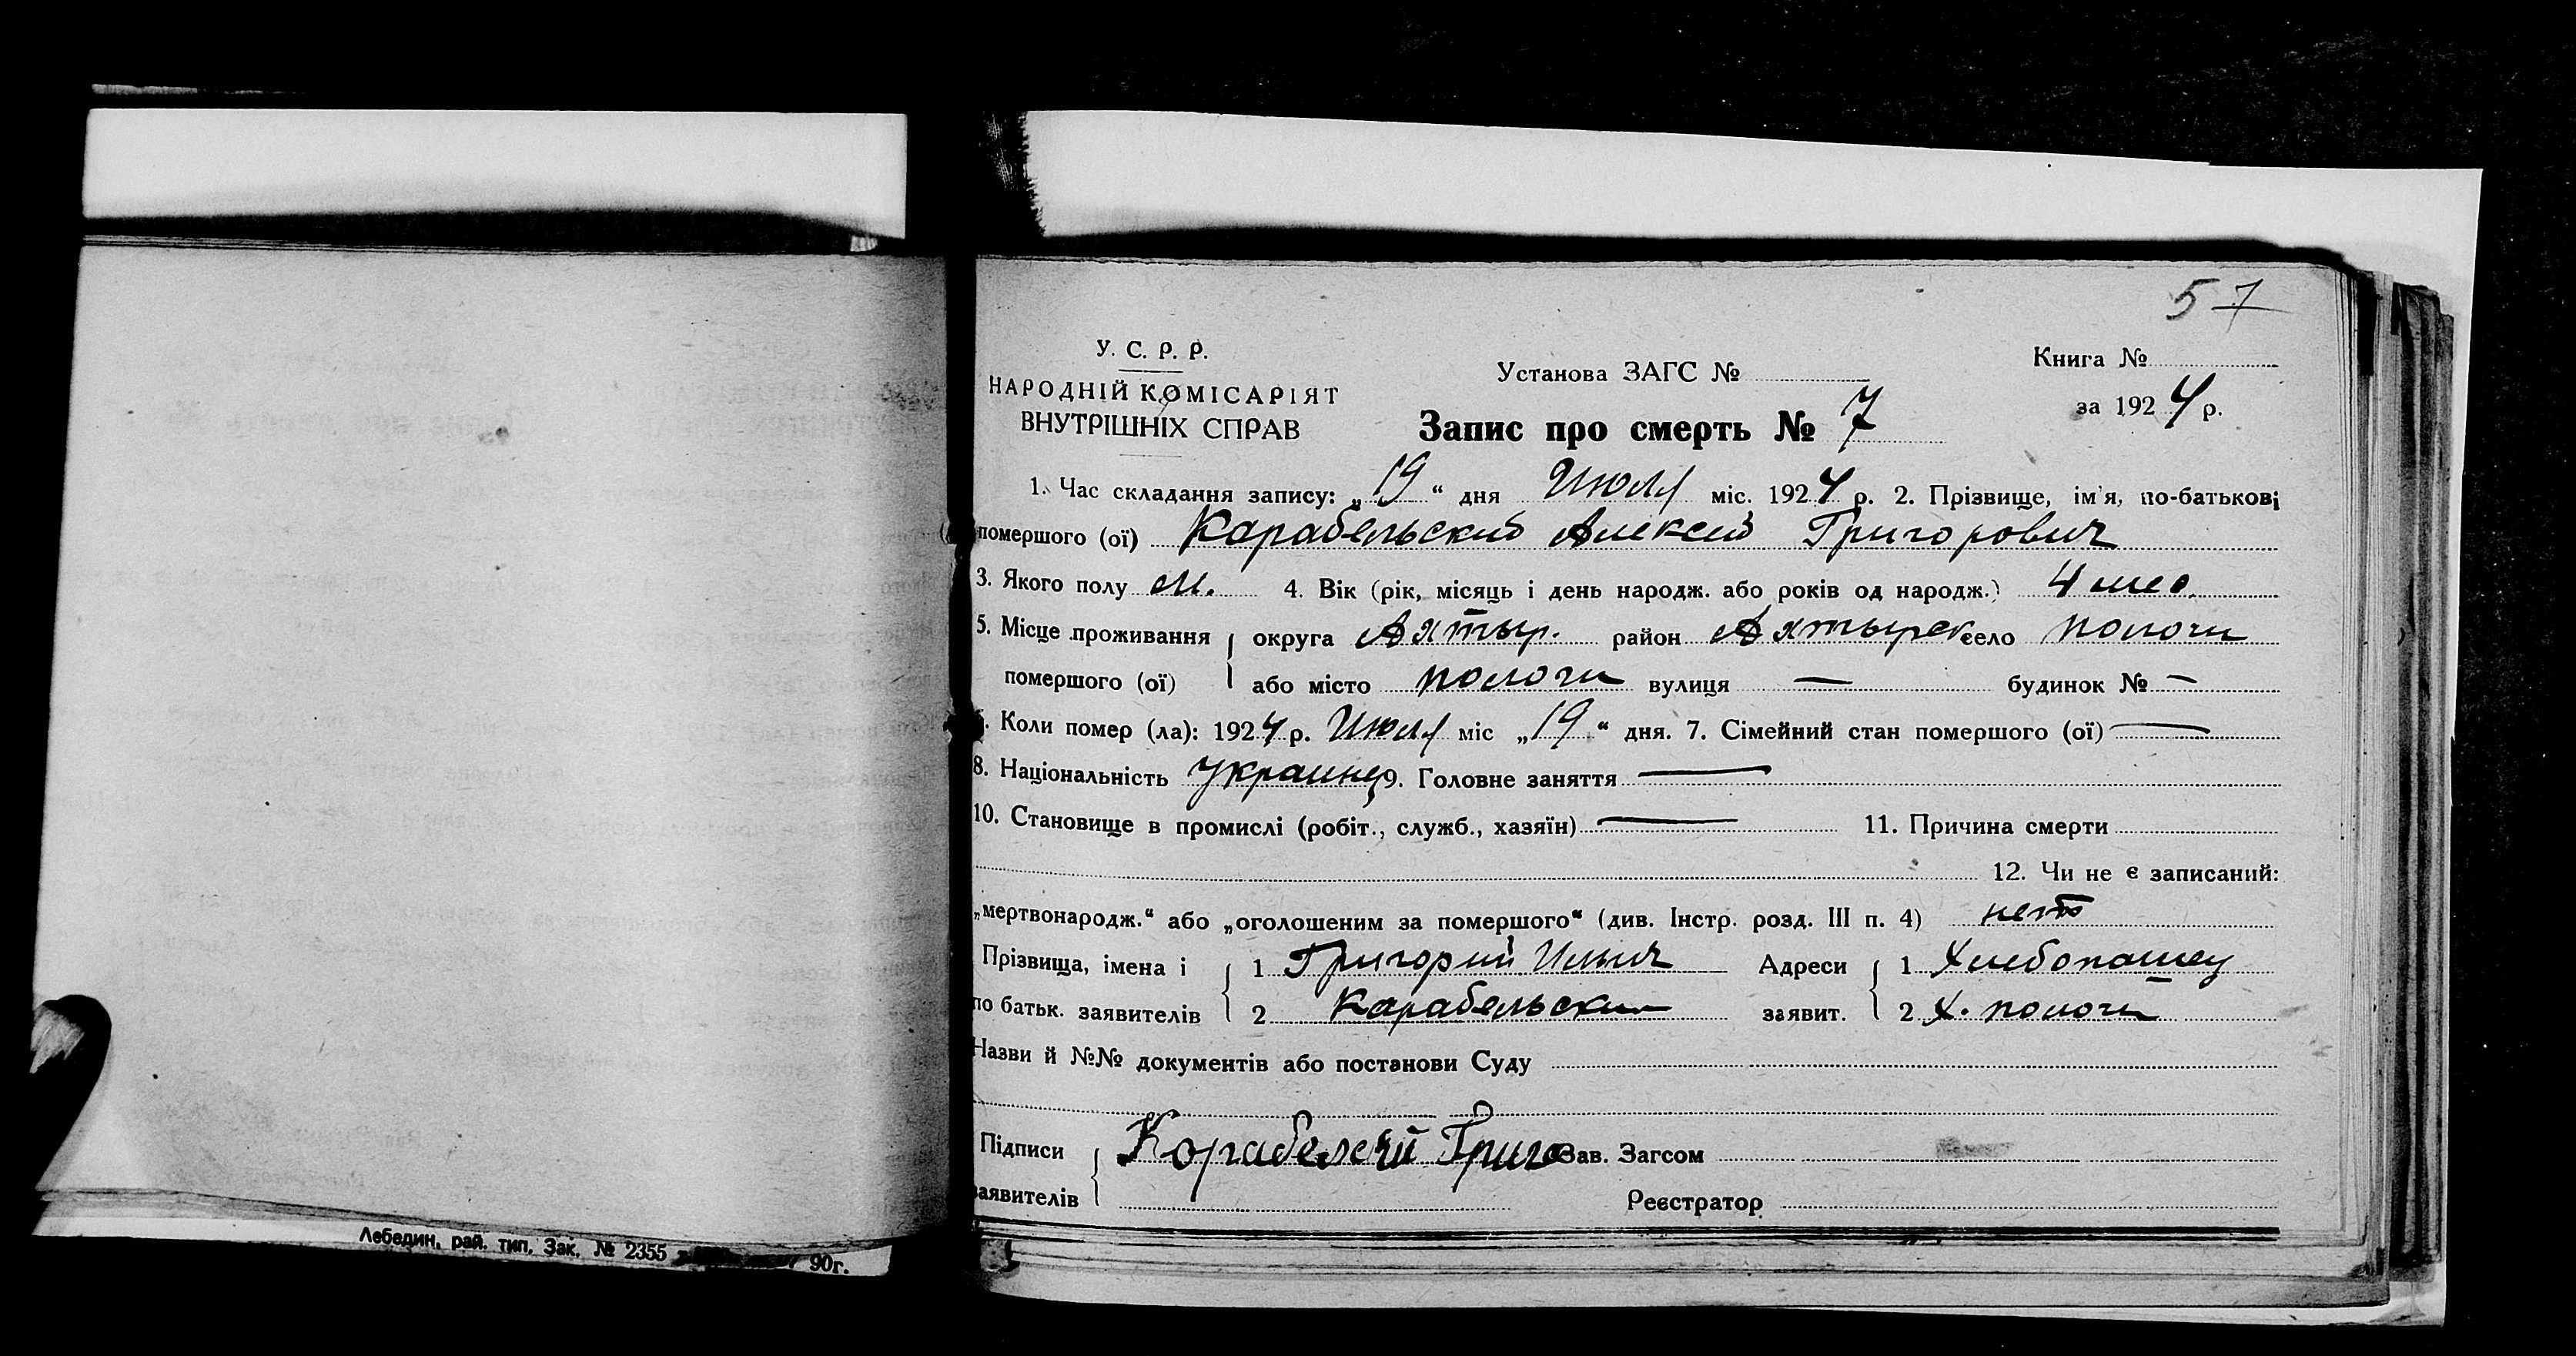 57
У. С. Р. Р.
НАРОДНІЙ КОМІСАРІЯТ
ВНУТРІШНІХ СПРАВ
Установа ЗАГС №
Книга №
за 1924 р.
Запис про смерть № 7
1. Час складання запису: „19“ дня Июля міс. 1924 р. 2. Прізвище, ім'я, по-батькові
помершого (ої) Карабельский Алексей Григорович
3. Якого полу м. 4. Вік (рік, місяць і день народж. або років од народж.) 4 мес.
5. Місце проживання округа Ахтыр. район Ахтырск село пологи
помершого (ої) або місто пологи вулиця — будинок № —
. Коли помер (ла): 1924 р. Июля міс „19“ дня. 7. Сімейний стан помершого (ої) —
8. Національність украинец 9. Головне заняття —
10. Становище в промислі (робіт., служб., хазяїн) — 11. Причина смерти
12. Чи не є записаний:
„мертвонародж.“ або „оголошеним за помершого“ (див. Інстр. розд. III п. 4) нет
Прізвища, імена і 1 Григорий Ильич Адреси 1 Хлебопашец
по батьк. заявителів 2 Карабельский заявит. 2 х. пологи
Назви й №№ документів або постанови Суду
Підписи Григо Зав. Загсом
заявителів Реєстратор
Лебедин, рай. тип, Зак. № 2355 90г.